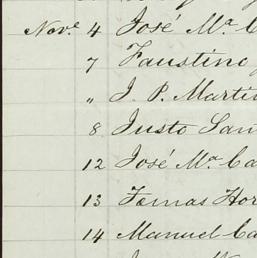 Nov.e 4 José Ma. C
7 Faustino
" J. P. Marti
8 Justo San
12 José Ma. Ca
13 Tomas Hor
14 Manuel Ca